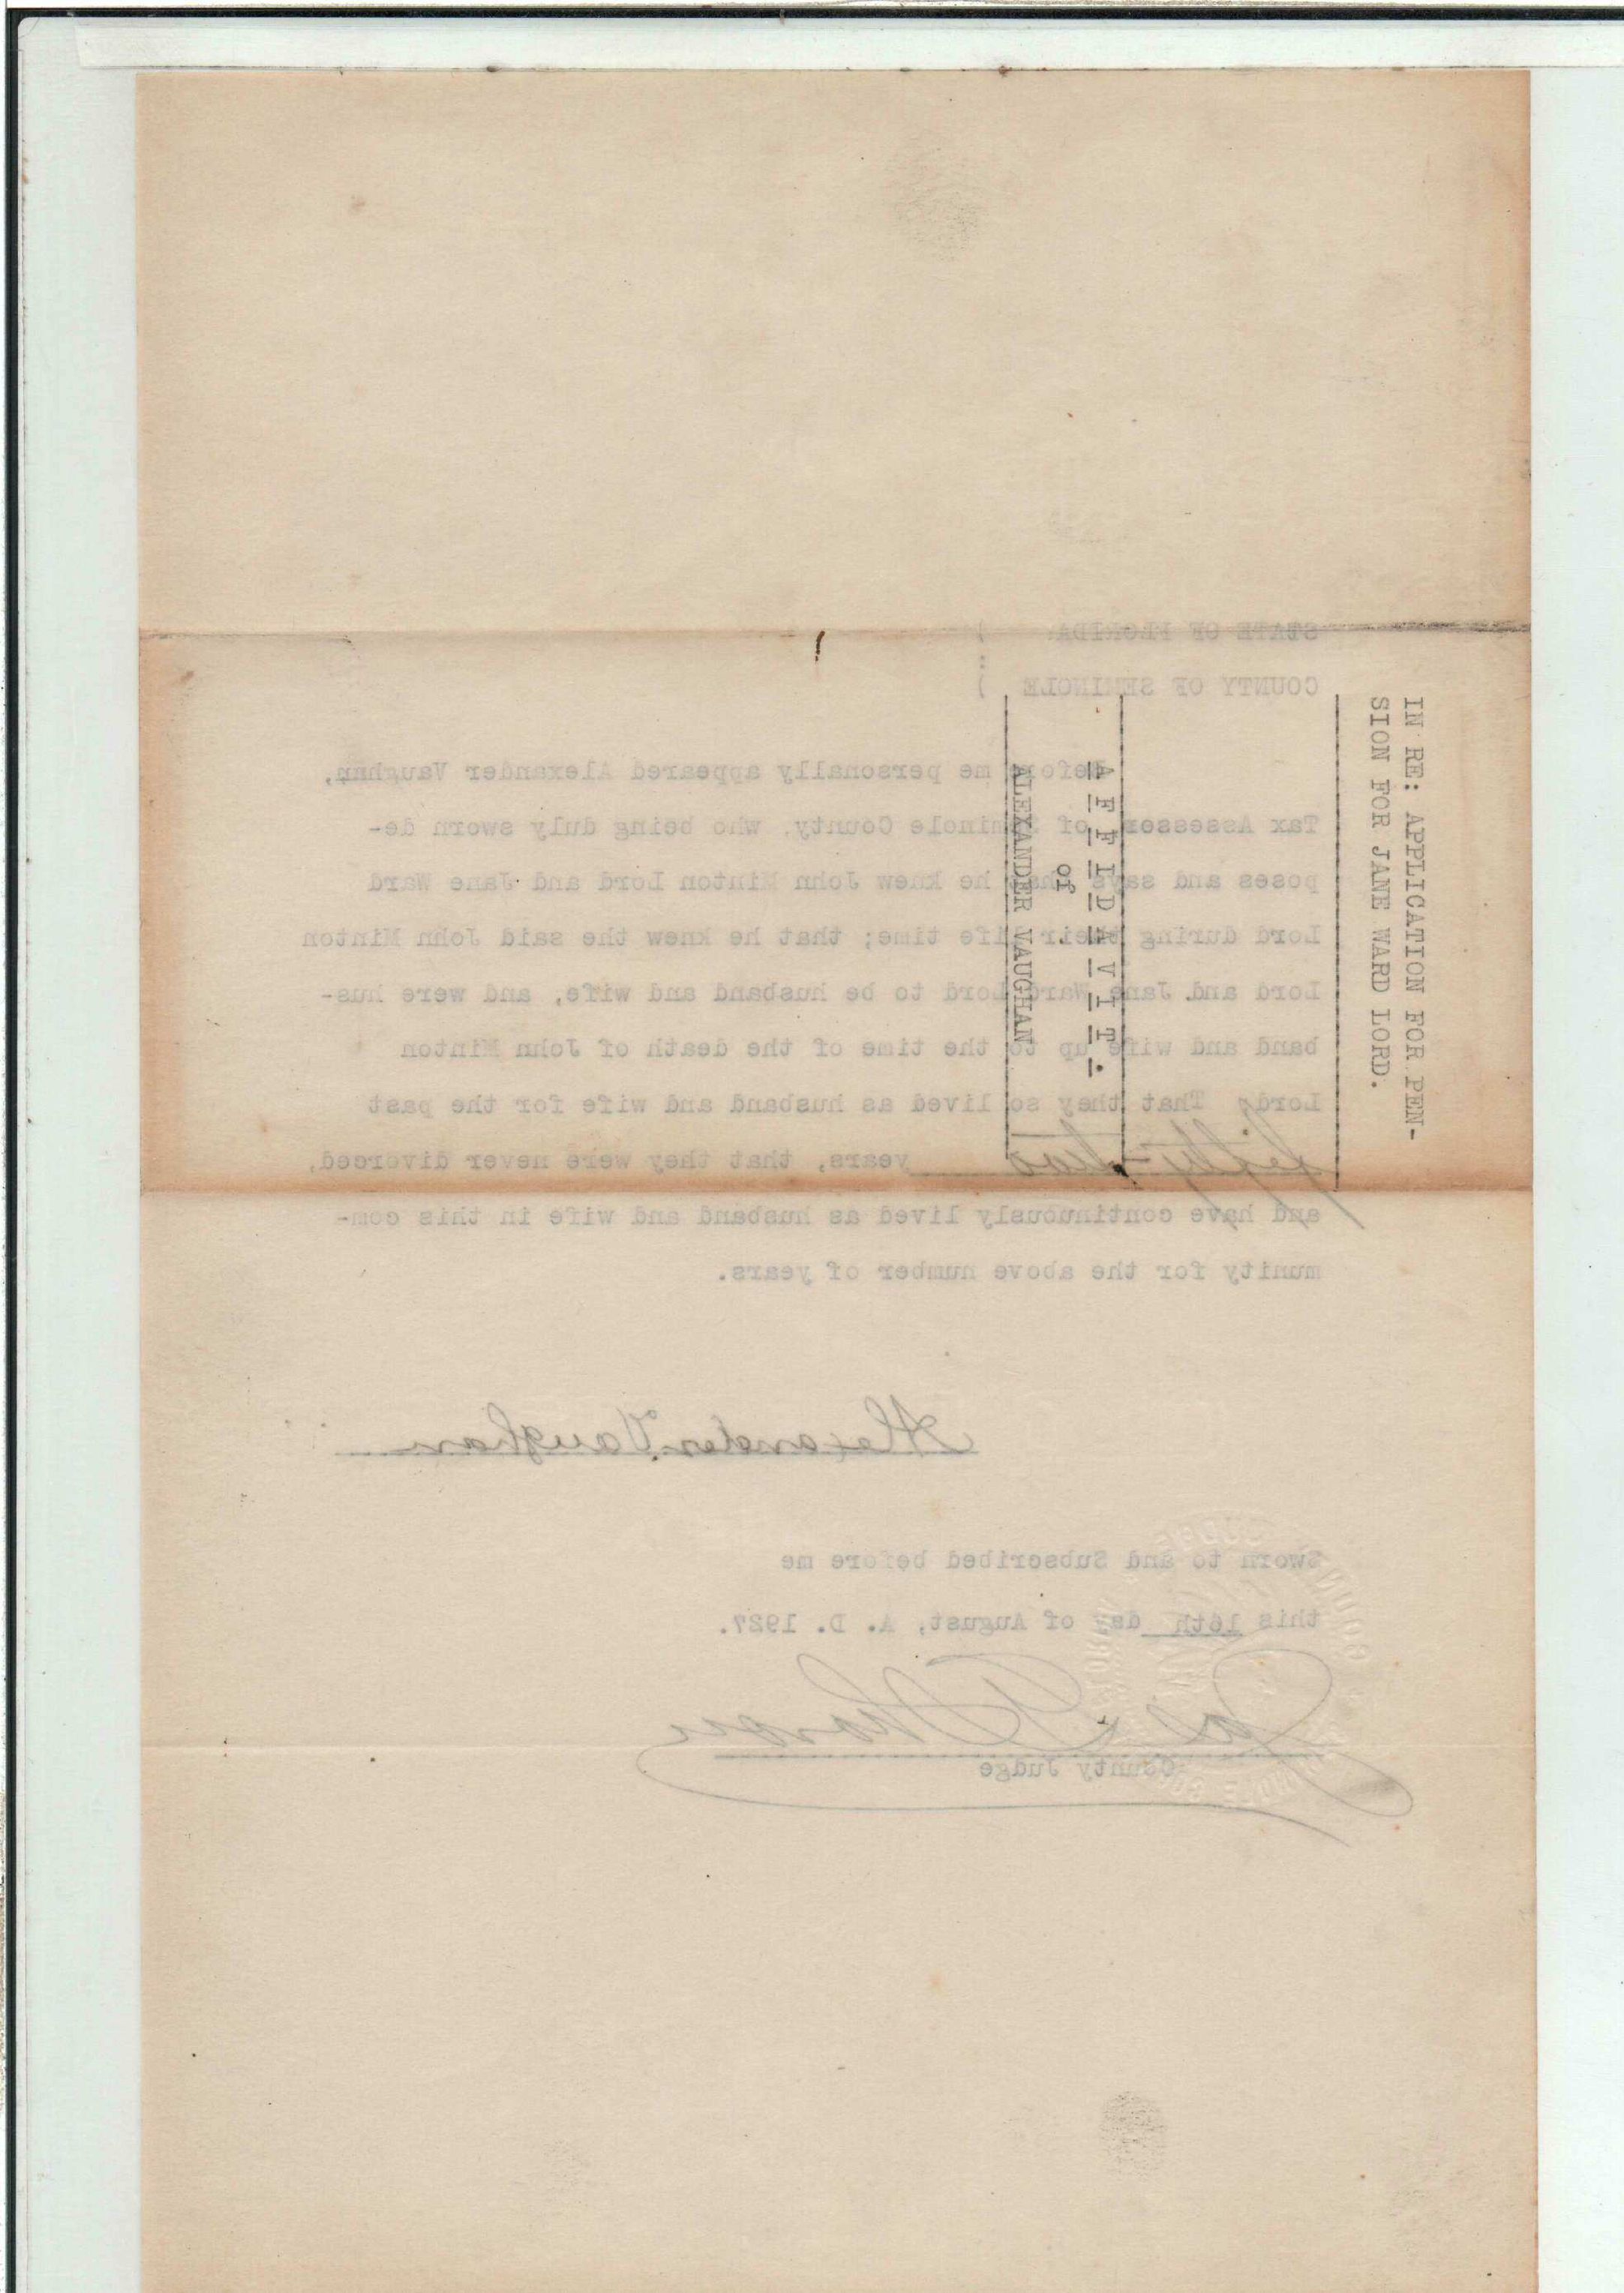 IN RE: APPLICATION FOR PEN-
SION FOR JANE WARD LORD.
A F F I D A V I T.
of
ALEXANDER VAUGHAN
STATE OF FLORIDA )
:
COUNTY OF SEMINOLE )
Before me personally appeared Alexander Vaughn,
Tax Assessor of Seminole County, who being duly sworn de-
poses and says that he knew John Minton Lord and Jane Ward
Lord during their life time; that he knew the said John Minton
Lord and Jane Ward Lord to be husband and wife, and were hus-
band and wife up to the time of the death of John Minton
Lord; That they so lived as husband and wife for the past
fifty-two years, that they were never divorced,
and have continuously lived as husband and wife in this com-
munity for the above number of years.
Alexander Vaughan
Sworn to and Subscribed before me
this 16th day of August, A. D. 1927.
County Judge